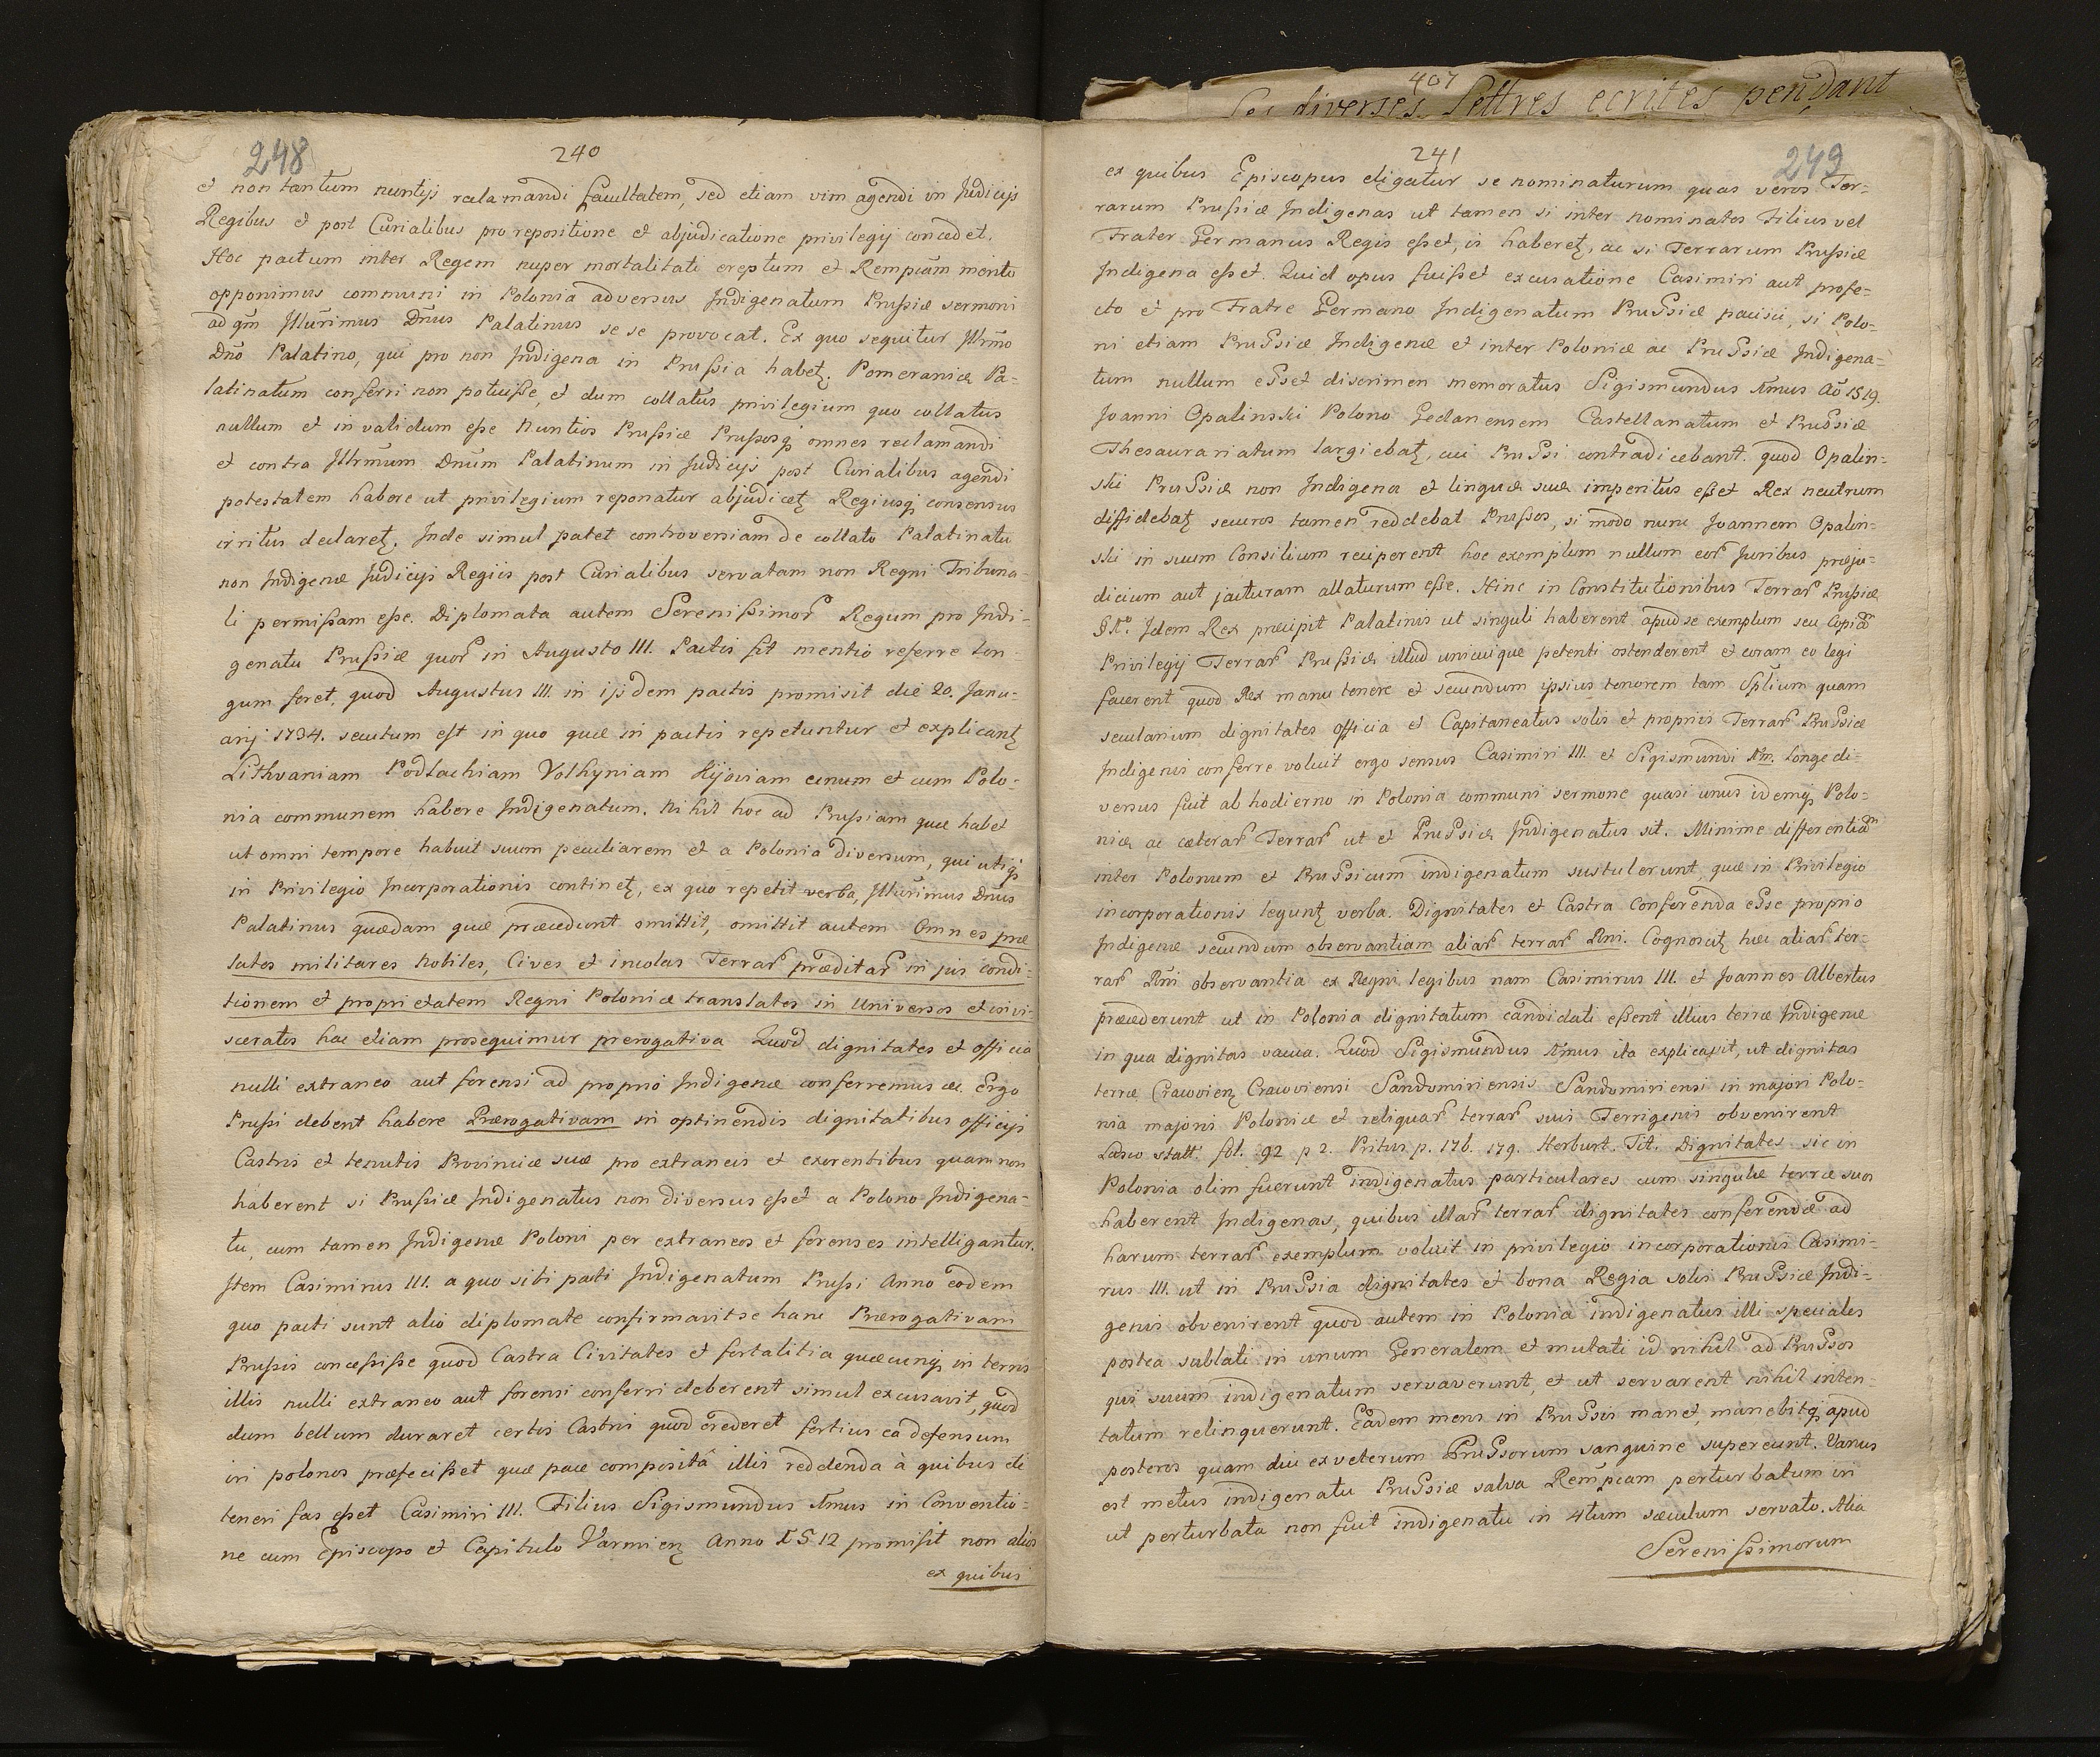 248
240
et non tantum nuntijs reclamandi facultatem, sed etiam vim agendi in Judicijs
Regibus et post Curialibus pro repositione et abjudicatione privilegij concedet.
Hoc pactum inter Regem nuper mortalitati ereptum et Rempcam merito
opponimus communi in Polonia adversus Indigenatum Prussiæ sermoni
ad qm Illurimus Dnus Palatinus se se provocat. Ex quo sequitur Illrmo
Dno Palatino, qui pro non Indigena in Prussia habet. Pomeraniæ Pa-
latinatum conferri non potuisse, et dum collatus privilegium quo collatus
nullum et invalidum esse Nuntios Prussiæ Prussosq omnes reclamandi
et contra Illrmum Dnum Palatinum in Judicijs post Curialibus agendi
potestatem habere ut privilegium reponatur abjudicet Regiusq consensus
irritus declaret. Inde simul patet controveniam de collato Palatinatu
non Indigenæ Judicijs Regiis post Curialibus servatam non Regni Tribuna-
li permissam esse. Diplomata autem Serenissimor Regum pro Indi-
genatu Prussiæ quor in Augusto III. Pactis fit mentio referre lon-
gum foret. quod Augustus III. in ijsdem pactis promisit die 20. Janu-
arij 1734. secutum est in quo quæ in pactis repetuntur et explicant
Lithvaniam Podlachiam Volhyniam Kijoviam unum et cum Polo-
nia communem habere Indigenatum. Nihil hoc ad Prussiam quæ habet
ut omni tempore habuit suum peculiarem et a Polonia diversum, qui utiq
in Privilegio Incorporationis continet, ex quo repetit verba, Illurimus Dnus
Palatinus quædam quæ præcedunt omittit, omittit autem Omnes præ
latos militares Nobiles, Cives et incolas Terrar præditar in jus condi-
tionem et proprietatem Regni Poloniæ translatos in Universos et invi-
sceratos hac etiam prosequimur prerogativa Quod dignitates et officia
nulli extraneo aut forensi ad proprio Indigenæ conferremus &c. Ergo
Prussi debent habere Prærogativam in optinendis dignitatibus officijs
Castris et tenutis Provinciæ suæ pro extraneis et exerentibus quam non
haberent si Prussiæ Indigenatus non diversus esset a Polono Indigena-
tu, cum tamen Indigenæ Poloni per extraneos et forenses intelligantur.
Item Casimirus III. a quo sibi pacti Indigenatum Prussi Anno eodem
quo pacti sunt alio diplomate confirmavit se hanc Prærogativam
Prussis concessisse quod Castra Civitates et fortalitia quæcunq in terris
illis nulli extraneo aut forensi conferri deberent simul excusavit, quod
dum bellum duraret certis Castris quod crederet fortius ea defensum
iri polonos præfecisset quæ pace composita illis reddenda à quibus de
teneri fas esset Casimiri III. Filius Sigismundus Imus in Conventio-
ne cum Episcopo et Capitulo Varmien Anno 1512 promisit non alios
ex quibus
407
Les diverses Lettres ecrites pendant
241
249
ex quibus Episcopus eligatur se nominaturum quas veros Ter-
rarum Prussiæ Indigenas ut tamen si inter nominatos Filius vel
Frater Germanus Regis esset, is haberet, ac si Terrarum Prussiæ
Indigena esset. Quid opus fuisset excusatione Casimiri aut profe-
cto et pro Fratre Germano Indigenatum Prussiæ pacisci, si Polo-
ni etiam Prussiæ Indigenæ et inter Poloniæ ac Prussiæ Indigena-
tum nullum esset discrimen memoratus Sigismundus Imus Ao 1519.
Joanni Opalinski Polono Gedanensem Castellanatum et Prussiæ
Thesaurariatum largiebat, cui Prussi contradicebant. quod Opalin-
ski Prussiæ non Indigena et linguæ suæ imperitus esset Rex neutrum
diffidebat securos tamen reddebat Prussos, si modo nunc Joannem Opalin-
ski in suum Consilium reciperent hoc exemplum nullum eor Juribus præju-
dicium aut jacturam allaturum esse. Hinc in Constitutionibus Terrar Prussiæ
Idem Rex præcipit Palatinis ut singuli haberent apud se exemplum seu Copiam
Privilegij Terrar Prussiæ illud unicuique petenti ostenderent et coram eo legi
facerent quod Rex manu tenere et secundum ipsius tenorem tam Splium quam
secularium dignitates officia et Capitaneatus solis et propriis Terrar Prussiæ
Indigenis conferre voluit ergo sensus Casimiri III. et Sigismundi Imi. longe di-
versus fuit ab hodierno in Polonia communi sermone quasi unus idemq Polo-
niæ ac cæterar Terrar ut et Prussiæ Indigenatus sit. Minime differentiam
inter Polonum et Prussicum indigenatum sustulerunt, quæ in Privilegio
incorporationis legunt verba. Dignitates et Castra Conferenda esse proprio
Indigenæ secundum observantiam aliar terrar Rni. Cognoscit hæc aliar ter-
rar Rni observantia ex Regni legibus nam Casimirus III. et Joannes Albertus
præcederunt ut in Polonia dignitatum candidati essent illius terræ Indigenæ
in qua dignitas vacua. Quod Sigismundus Imus ita explicavit, ut dignitas
terræ Cracovien Cracoviensi Sandomiriensis Sandomiriensi in majori Polo-
nia majoris Poloniæ et reliquar terrar suis Terrigenis obvenirent
Lasco statt. fol. 92 p 2. Pritus p. 176. 179. Herburt. Tit. Dignitates sic in
Polonia olim fuerunt indigenatus particulares cum singulæ terræ suos
haberent Indigenas, quibus illar terrar dignitates conferendæ ad
harum terrar exemplum voluit in privilegio incorporationis Casimi-
rus III. ut in Prussia dignitates et bona Regia solis Prussiæ Indi-
genis obvenirent quod autem in Polonia indigenatus illi speciales
postea sublati in unum Generalem et mutati id nihil ad Prussos
qui suum indigenatum servaverunt, et ut servarent nihil inten-
tatum relinquerunt. Eadem mens in Prussis manet, manebitq apud
posteros quam diu ex veterum Prussorum sanguine supererunt. Vanus
est metus indigenatu Prussiæ salva Rempcam perturbatum iri
ut perturbata non fuit indigenatu in 4tum sæculum servato. Alia
Serenissimorum